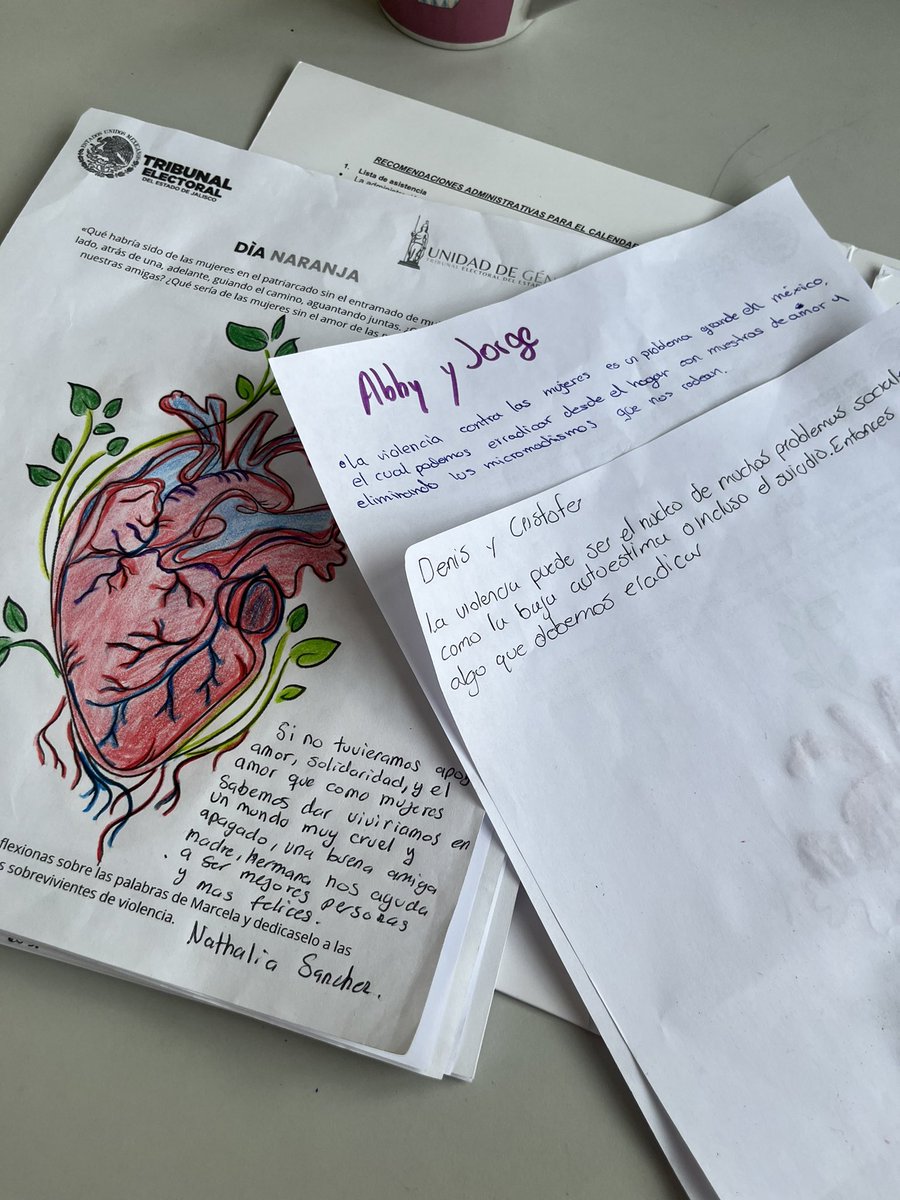 RECOMENDACIONES ADMINISTRATIVAS PARA EL CALENDAR
1. Lista de asistencia
ESTADOS UNIDOS MEXICANOS
TRIBUNAL
ELECTORAL
DEL ESTADO DE JALISCO
UNIDAD DE GÉN
TRIBUNAL ELECTORAL DEL ESTADO
DÌA NARANJA
«Qué habría sido de las mujeres en el patriarcado sin el entramado de mu
lado, atrás de una, adelante, guiando el camino, aguantando juntas.
nuestras amigas? ¿Qué sería de las mujeres sin el amor de las
Si no tuvieramos apoy
amor, solidaridad, y el
amor que como mujeres
Sabemos dar viviriamos en
un mundo muy cruel y
apagado, una buena amiga
madre, hermana, nos ayuda
a ser mejores personas
y mas felices.
flexionas sobre las palabras de Marcela y dedicaselo a las
s sobrevivientes de violencia.
Nathalia Sanchez.
Abby y Jorge
•La violencia contra las mujeres es un problema grande en méxico,
el cual podemos erradicar desde el hogar con muestras de amor y
eliminando los micromachismos que nos rodean.
Denis y Cristofer
La violencia puede ser el nucleo de muchos problemas sociale
como la baja autoestima o incluso el suicidio. Entonces
algo que debemos eradicar